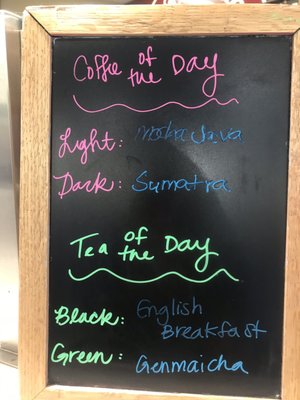 Coffee of the Day
Light: Mocha Java
Dark: Sumatra
Tea of the Day
Black: English
Breakfast
Green: Genmaicha